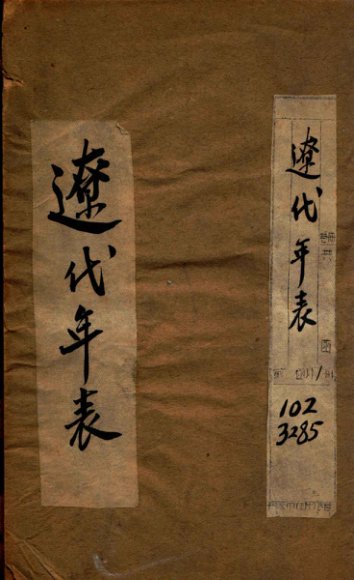 遼代年表
遼代年表
102
3285